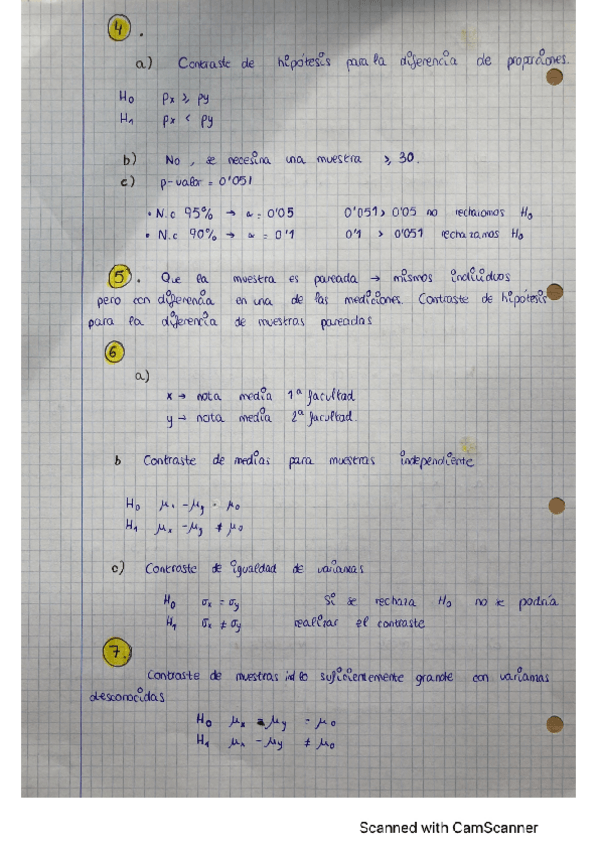 4.
a) Contraste de hipótesis para la diferencia de proporciones.
H0 px ≥ py
H1 px < py
b) No, se necesita una muestra ≥ 30.
c) p-valor = 0'051
• N.c 95% → α = 0'05 0'051 > 0'05 no rechazamos H0
• N.c 90% → α = 0'1 0'1 > 0'051 rechazamos H0
5. Que la muestra es pareada → mismos individuos
pero con diferencia en una de las mediciones. Contraste de hipótesis
para la diferencia de muestras pareadas
6
a)
x → nota media 1ª facultad
y → nota media 2ª facultad.
b Contraste de medias para muestras independiente
H0 μx - μy = μ0
H1 μx - μy ≠ μ0
c) Contraste de igualdad de varianzas
H0 σx = σy Si se rechaza H0 no se podría
H1 σx ≠ σy realizar el contraste
7.
Contraste de muestras suficientemente grande con varianzas
desconocidas
H0 μx - μy = μ0
H1 μx - μy ≠ μ0
Scanned with CamScanner